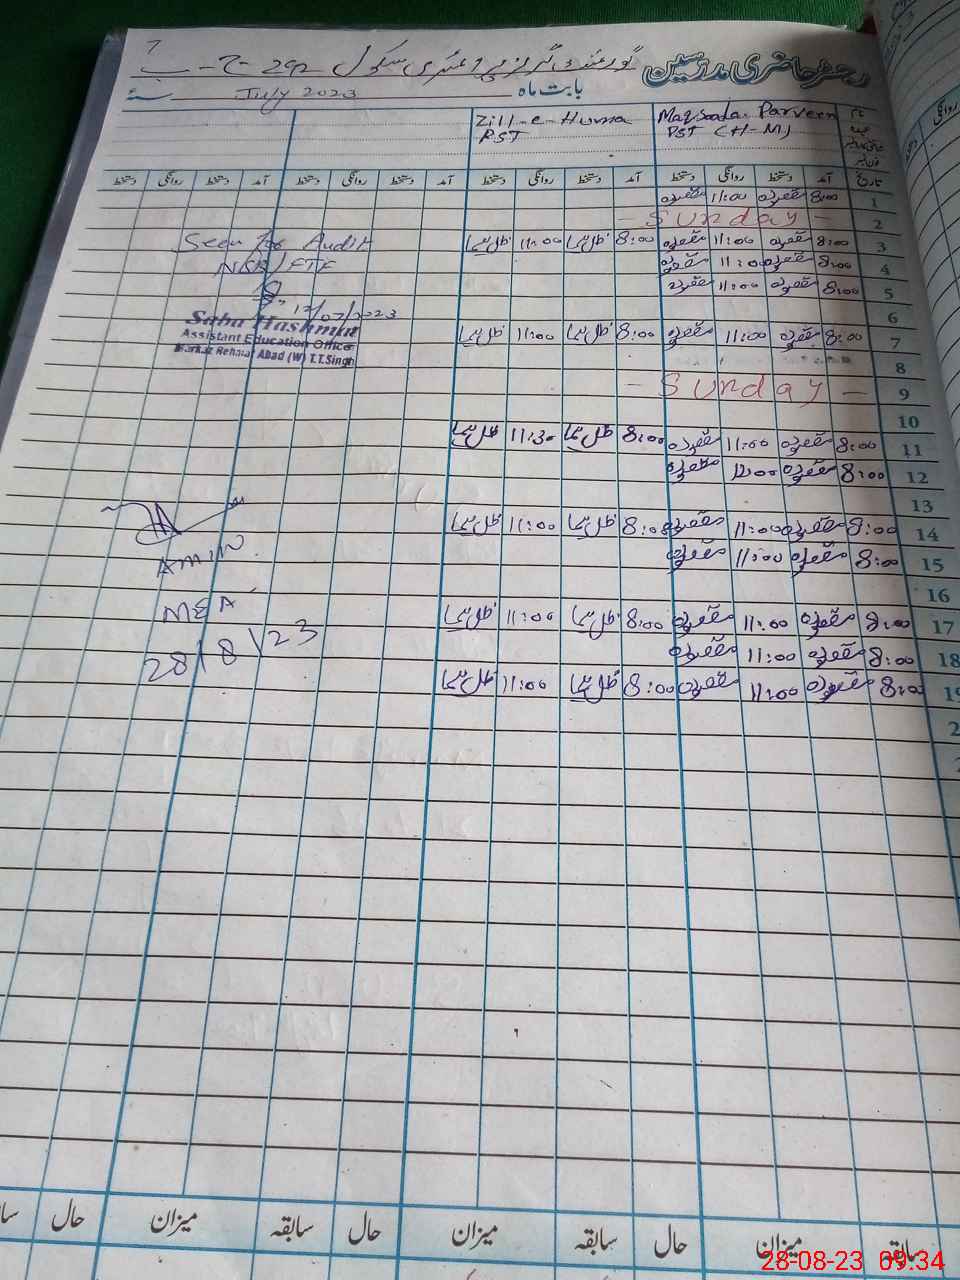 7
رجسٹر حاضری مدرسین گورنمنٹ گرلز پرائمری سکول 292 ج-ب
بابت ماہ July 2023 سنۂ
نام Maqsooda Parveen Zill-e-Huma
عہدہ PST (H-M) PST
تاریخ آمد دستخط روانگی دستخط آمد دستخط روانگی دستخط آمد دستخط روانگی دستخط آمد دستخط روانگی دستخط
1 8:00 مقصودہ 11:00 مقصودہ
2 - Sunday -
3 8:00 مقصودہ 11:00 مقصودہ 8:00 ظل ہما 11:00 ظل ہما
4 8:00 مقصودہ 11:00 مقصودہ
5 8:00 مقصودہ 11:00 مقصودہ
6
7 8:00 مقصودہ 11:00 مقصودہ 8:00 ظل ہما 11:00 ظل ہما
8
9 - Sunday -
10
11 8:00 مقصودہ 11:00 مقصودہ 8:00 ظل ہما 11:30 ظل ہما
12 8:00 مقصودہ 12:00 مقصودہ
13
14 8:00 مقصودہ 11:00 مقصودہ 8:00 ظل ہما 11:00 ظل ہما
15 8:00 مقصودہ 11:00 مقصودہ
16
17 8:00 مقصودہ 11:00 مقصودہ 8:00 ظل ہما 11:00 ظل ہما
18 8:00 مقصودہ 11:00 مقصودہ
19 8:00 مقصودہ 11:00 مقصودہ 8:00 ظل ہما 11:00 ظل ہما
Seen for Audit
NSB/FTF
17/07/2023
Saba Hashmat
Assistant Education Officer
Markaz Rehmat Abad (W) T.T.Singh
Amin
MEA
28/8/23
سابقہ میزان حال سابقہ میزان حال سابقہ میزان حال
28-08-23 09:34